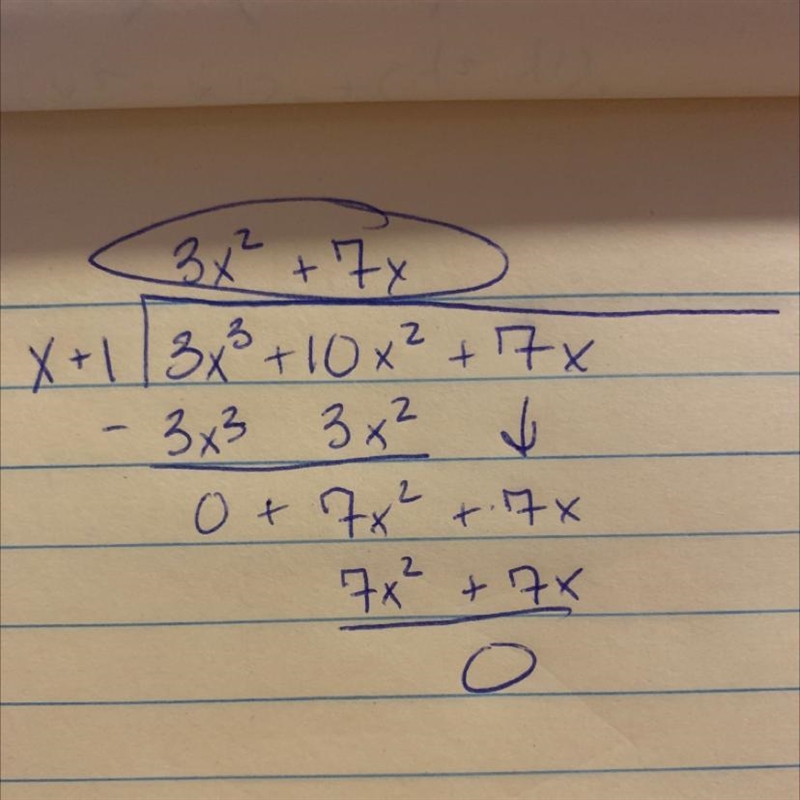 3x² + 7x
x+1 3x³ + 10x² + 7x
- 3x³ 3x² ↓
0 + 7x² + 7x
7x² + 7x
0